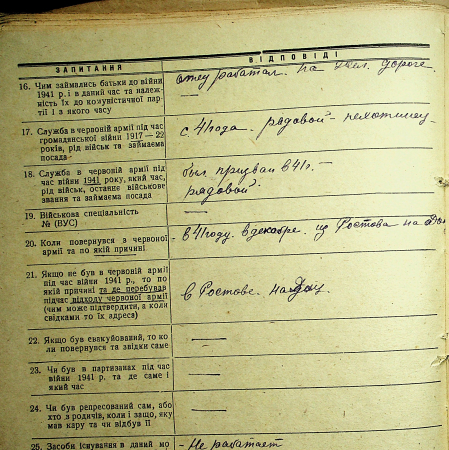 ЗАПИТАННЯ
ВІДПОВІДІ
16. Чим займались батьки до війни
1941 р. і в даний час та належ-
ність їх до комуністичної пар-
тії і з якого часу
отец работал. на жел. дороге.
—
17. Служба в червоній армії під час
громадянської війни 1917—22
років, рід військ та займаема
посада
с 41 года. рядовой - пехотинец
18. Служба в червоній армії під
час війни 1941 року, який час,
рід військ, останнє військове
звання та займаема посада
был призван в 41 г. —
рядовой.
19. Військова спеціальність
№ (ВУС)
—
20. Коли повернувся з червоної
армії та по якій причині
- в 41 году. в декабре. из Ростова на Дону
21. Якщо не був в червоній армії
під час війни 1941 р., то по
якій причині та де перебував
підчас відходу червоної армії
(чим може підтвердити, а коли
свідками то їх адреса)
в Ростове. на Дон.
22. Якщо був евакуйований, то ко-
ли повернувся та звідки саме
—
23. Чи був в партизанах під час
війни 1941 р. та де саме і
який час
—
24. Чи був репресований сам, або
хто з родичів, коли і защо, яку
мав кару та чи відбув її
—
25. Засоби існування в даний мо
- Не работает